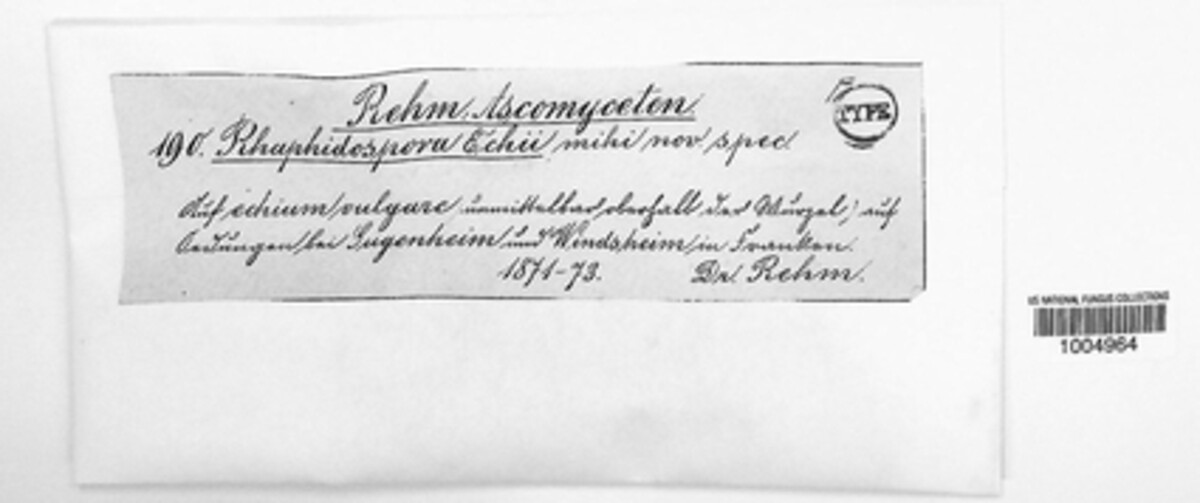 Rehm. Ascomyceten
TYPE
190. Rhaphidospora Echii mihi nov. spec.
Auf echium vulgare, unmittelbar oberhalb der Wurzel, auf
Oedungen bei Sugenheim und Windsheim in Franken.
1871-73. Dr. Rehm.
US NATIONAL FUNGUS COLLECTIONS
1004964